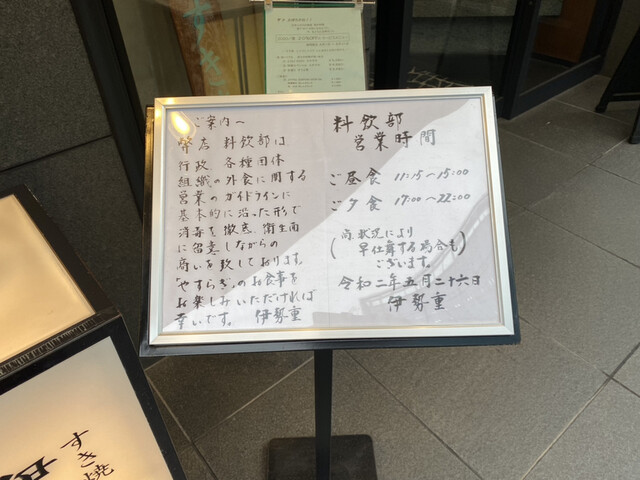 ご案内へ
弊店 料飲部は
行政 各種団体
組織の外食に関する
営業のガイドラインに
基本的に沿った形で
消毒を徹底、衛生面
に留意しながらの
商いを致しております。
「やすらぎ」のお食事を
お楽しみいただければ
幸いです。 伊勢重
料飲部
営業時間
ご昼食 11:15〜15:00
ご夕食 17:00〜22:00
(商状況により
早仕舞する場合も
ございます。)
令和二年五月二十六日
伊勢重
すき焼